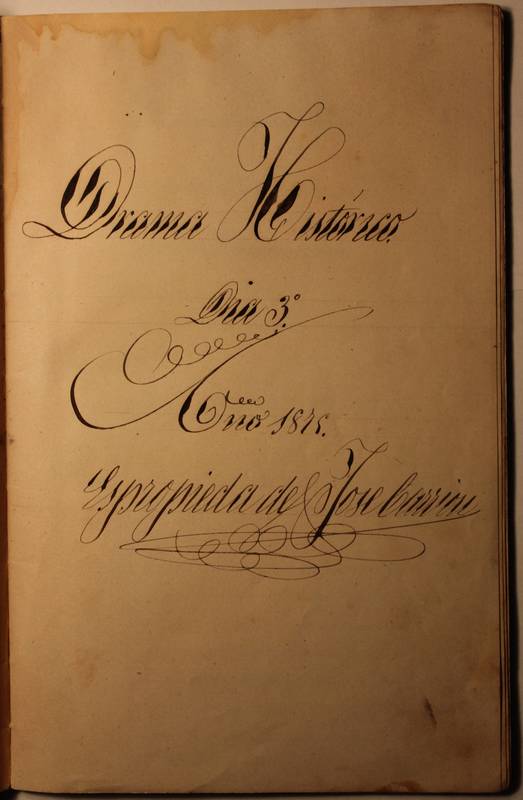 Drama Histórico.
Dia 3.º
Año 1875.
Es propieda de Jose Carrini